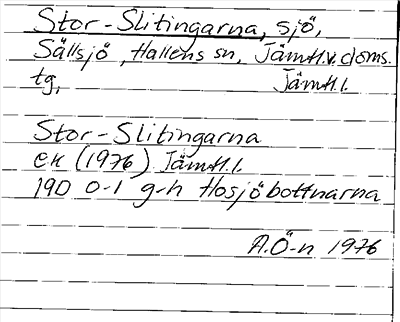 Stor-Slitingarna, sjö,
Sällsjö, Hallens sn, Jämtl.v.doms.
tg, Jämtl.l.
Stor-Slitingarna
ek (1976) Jämtl.l.
19D 0-1 g-h Hosjöbottnarna
A.Ö-n 1976